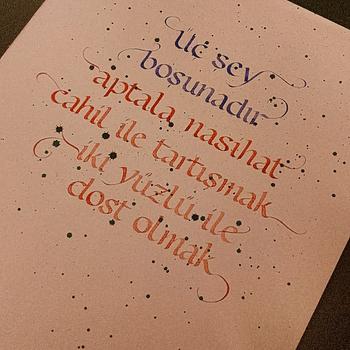 Üç şey
boşunadır
aptala nasihat
cahil ile tartışmak
iki yüzlü ile
dost olmak